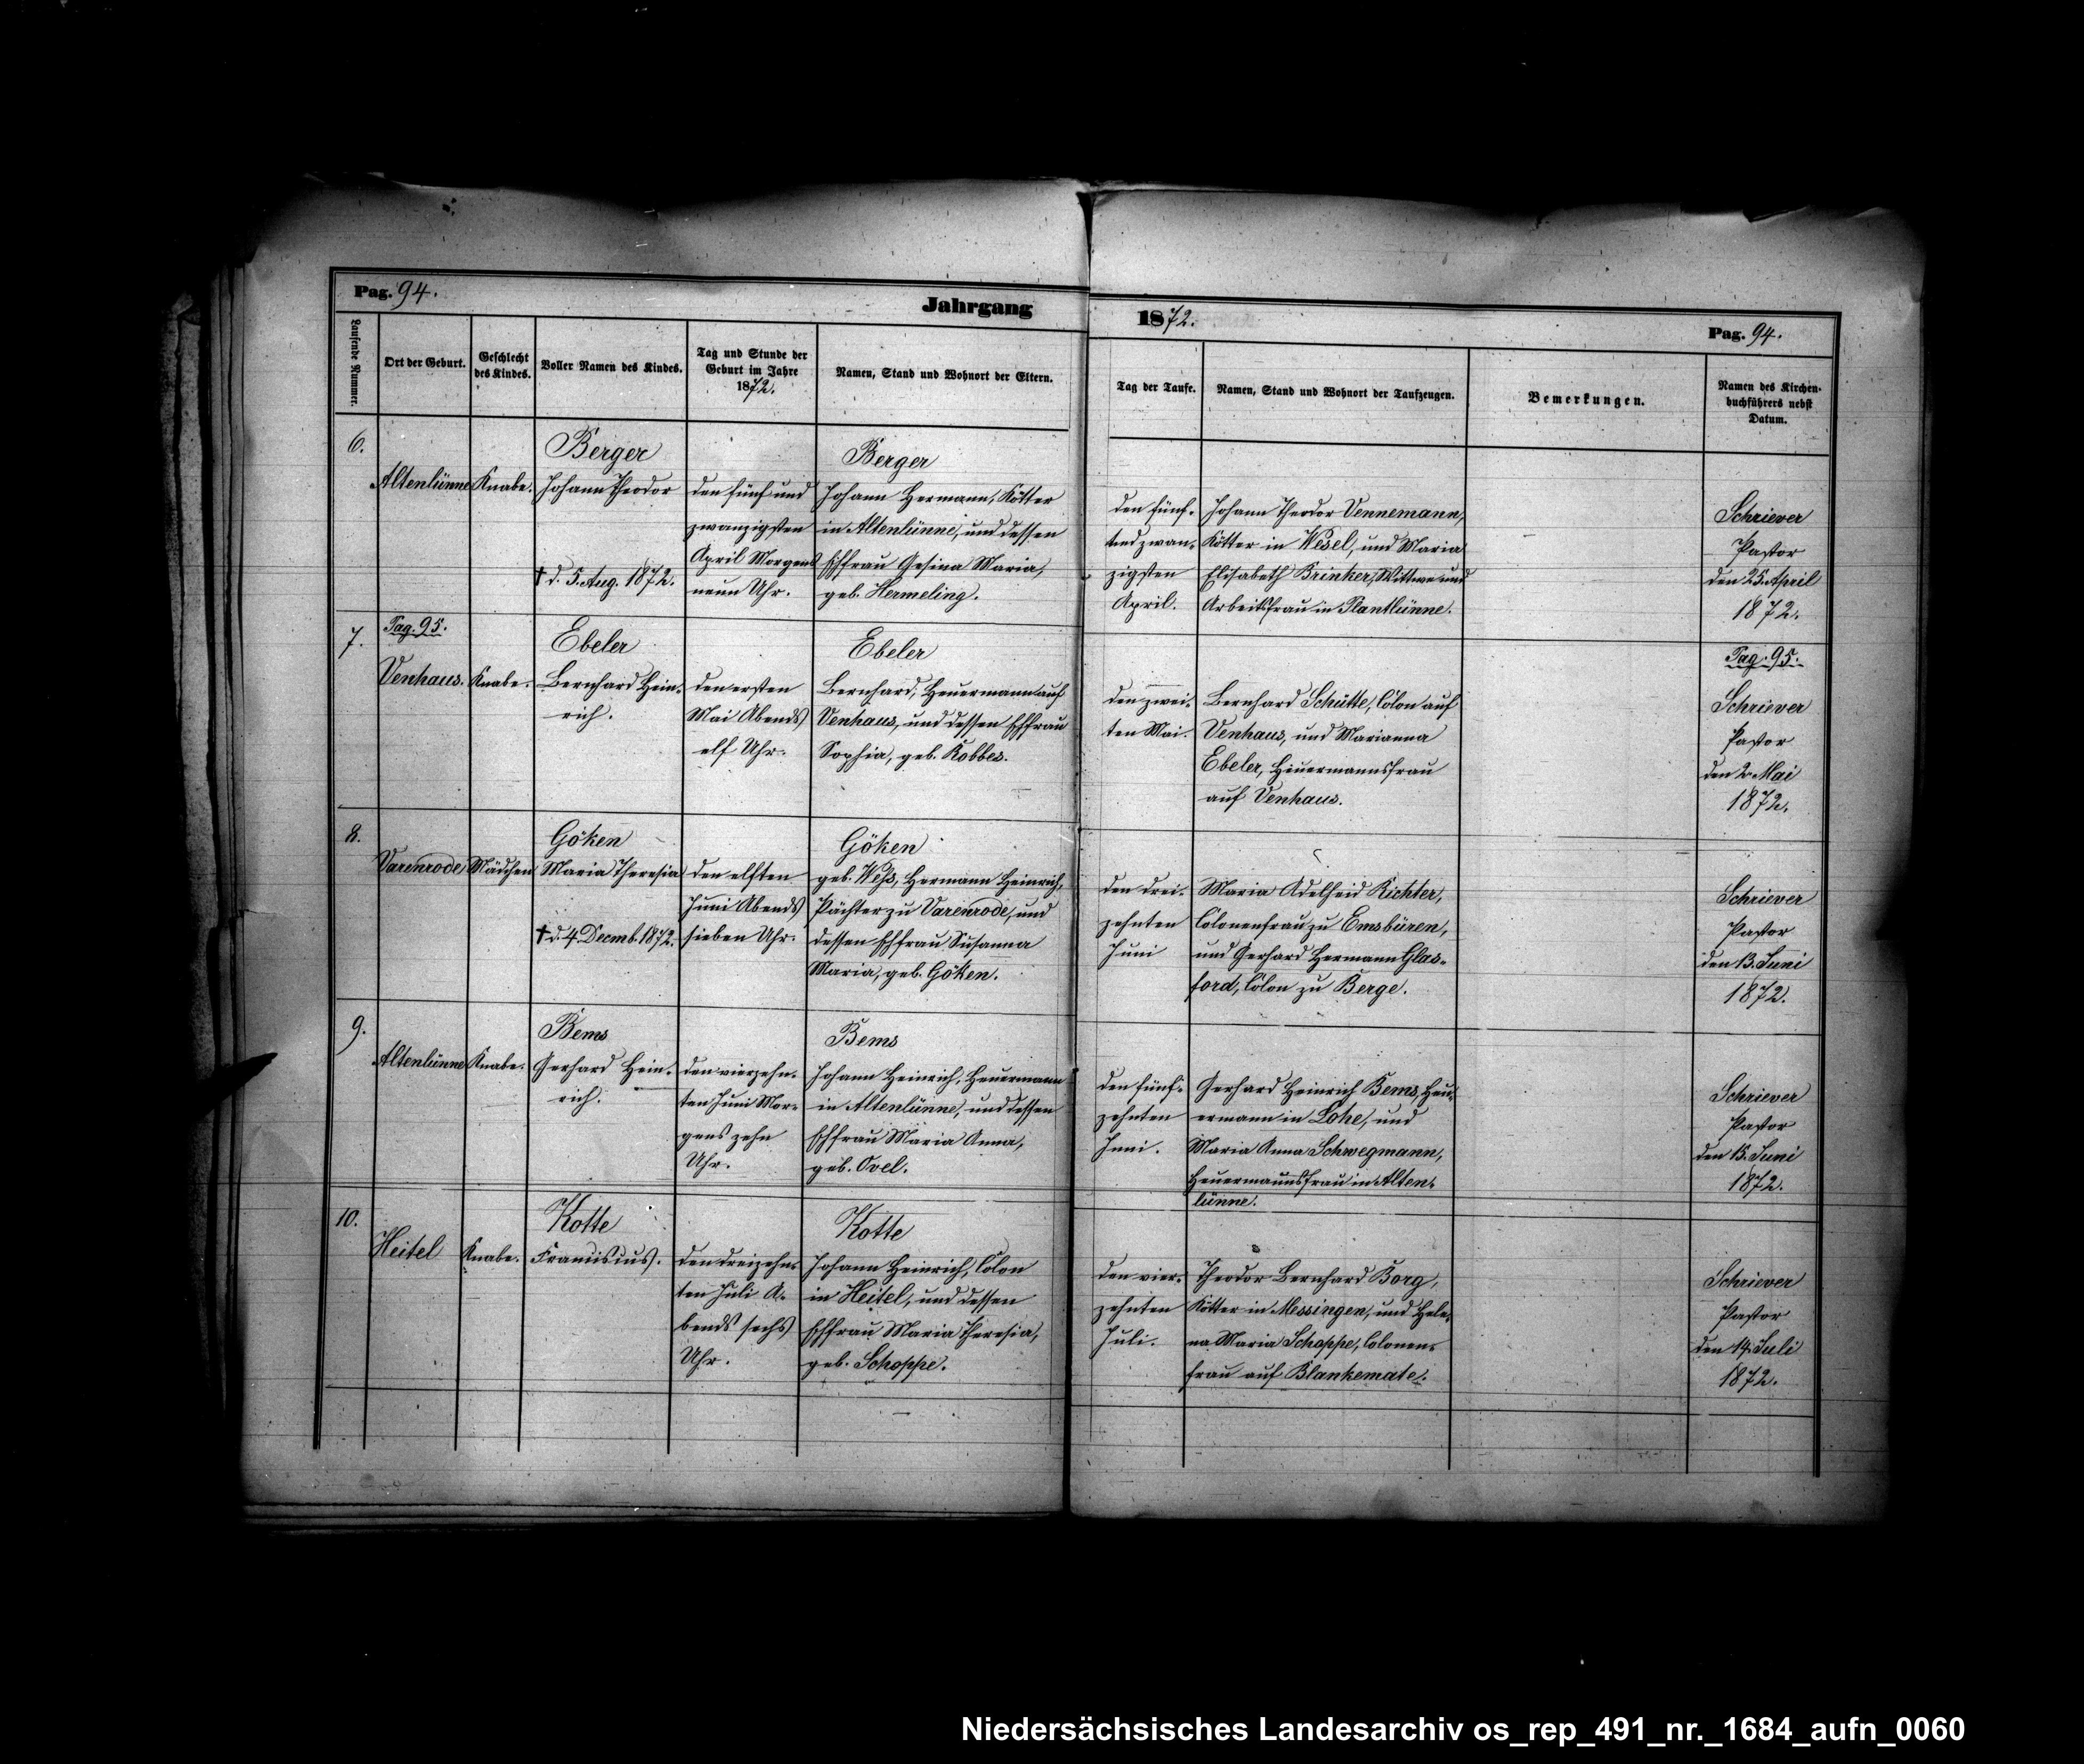 Pag. 94.
Jahrgang
1872.
Pag. 94.
Laufende Nummer.
Ort der Geburt.
Geschlecht
des Kindes.
Voller Namen des Kindes.
Tag und Stunde der
Geburt im Jahre
1872.
Namen, Stand und Wohnort der Eltern.
Tag der Taufe.
Namen, Stand und Wohnort der Taufzeugen.
Bemerkungen.
Namen des Kirchen-
buchführers nebst
Datum.
6.
Altenlünne
Knabe.
Berger
Johann Theodor
† d. 5. Aug. 1872.
den fünf und
zwanzigsten
April Morgens
neun Uhr.
Berger
Johann Hermann, Kötter
in Altenlünne, und dessen
Ehfrau Gesina Maria,
geb. Hermeling.
den fünf-
undzwan-
zigsten
April.
Johann Theodor Vennemann,
Kötter in Wesel, und Maria
Elisabeth Brinker, Wittwe und
Arbeitsfrau in Plantlünne.
Schriever
Pastor
den 25. April
1872.
7.
Pag. 95.
Venhaus.
Knabe.
Ebeler
Bernhard Hein-
rich.
den ersten
Mai Abends
elf Uhr.
Ebeler
Bernhard, Heuermann auf
Venhaus, und dessen Ehfrau
Sophia, geb. Kobbes.
den zwei-
ten Mai.
Bernhard Schütte, Colon auf
Venhaus, und Marianna
Ebeler, Heuermannsfrau
auf Venhaus.
Pag. 95.
Schriever
Pastor
den 2. Mai
1872.
8.
Varenrode
Mädchen
Göken
Maria Theresia
† d. 4. Decmb. 1872.
den elften
Juni Abends
sieben Uhr.
Göken
geb. Weß, Hermann Heinrich,
Pächter zu Varenrode, und
dessen Ehfrau Susanna
Maria, geb. Göken.
den drei-
zehnten
Juni
Maria Adelheid Richter,
Colonenfrau zu Emsbüren,
und Gerhard Hermann Glas-
ford, Colon zu Berge.
Schriever
Pastor
den 13. Juni
1872.
9.
Altenlünne
Knabe.
Bems
Gerhard Hein-
rich.
den vierzehn-
ten Juni Mor-
gens zehn
Uhr.
Bems
Johann Heinrich, Heuermann
in Altenlünne, und dessen
Ehfrau Maria Anna,
geb. Ovel.
den fünf-
zehnten
Juni.
Gerhard Heinrich Bems, Heu-
ermann in Lohe, und
Maria Anna Schwegmann,
Heuermannsfrau in Alten-
lünne.
Schriever
Pastor
den 15. Juni
1872.
10.
Heitel
Knabe.
Kotte
Franciscus.
den dreizehn-
ten Juli A-
bends sechs
Uhr.
Kotte
Johann Heinrich, Colon
in Heitel, und dessen
Ehfrau Maria Theresia,
geb. Schoppe.
den vier-
zehnten
Juli.
Theodor Bernhard Borg,
Kötter in Messingen, und Hele-
na Maria Schoppe, Colonen-
frau auf Blankemate.
Schriever
Pastor
den 14. Juli
1872.
Niedersächsisches Landesarchiv os_rep_491_nr._1684_aufn_0060